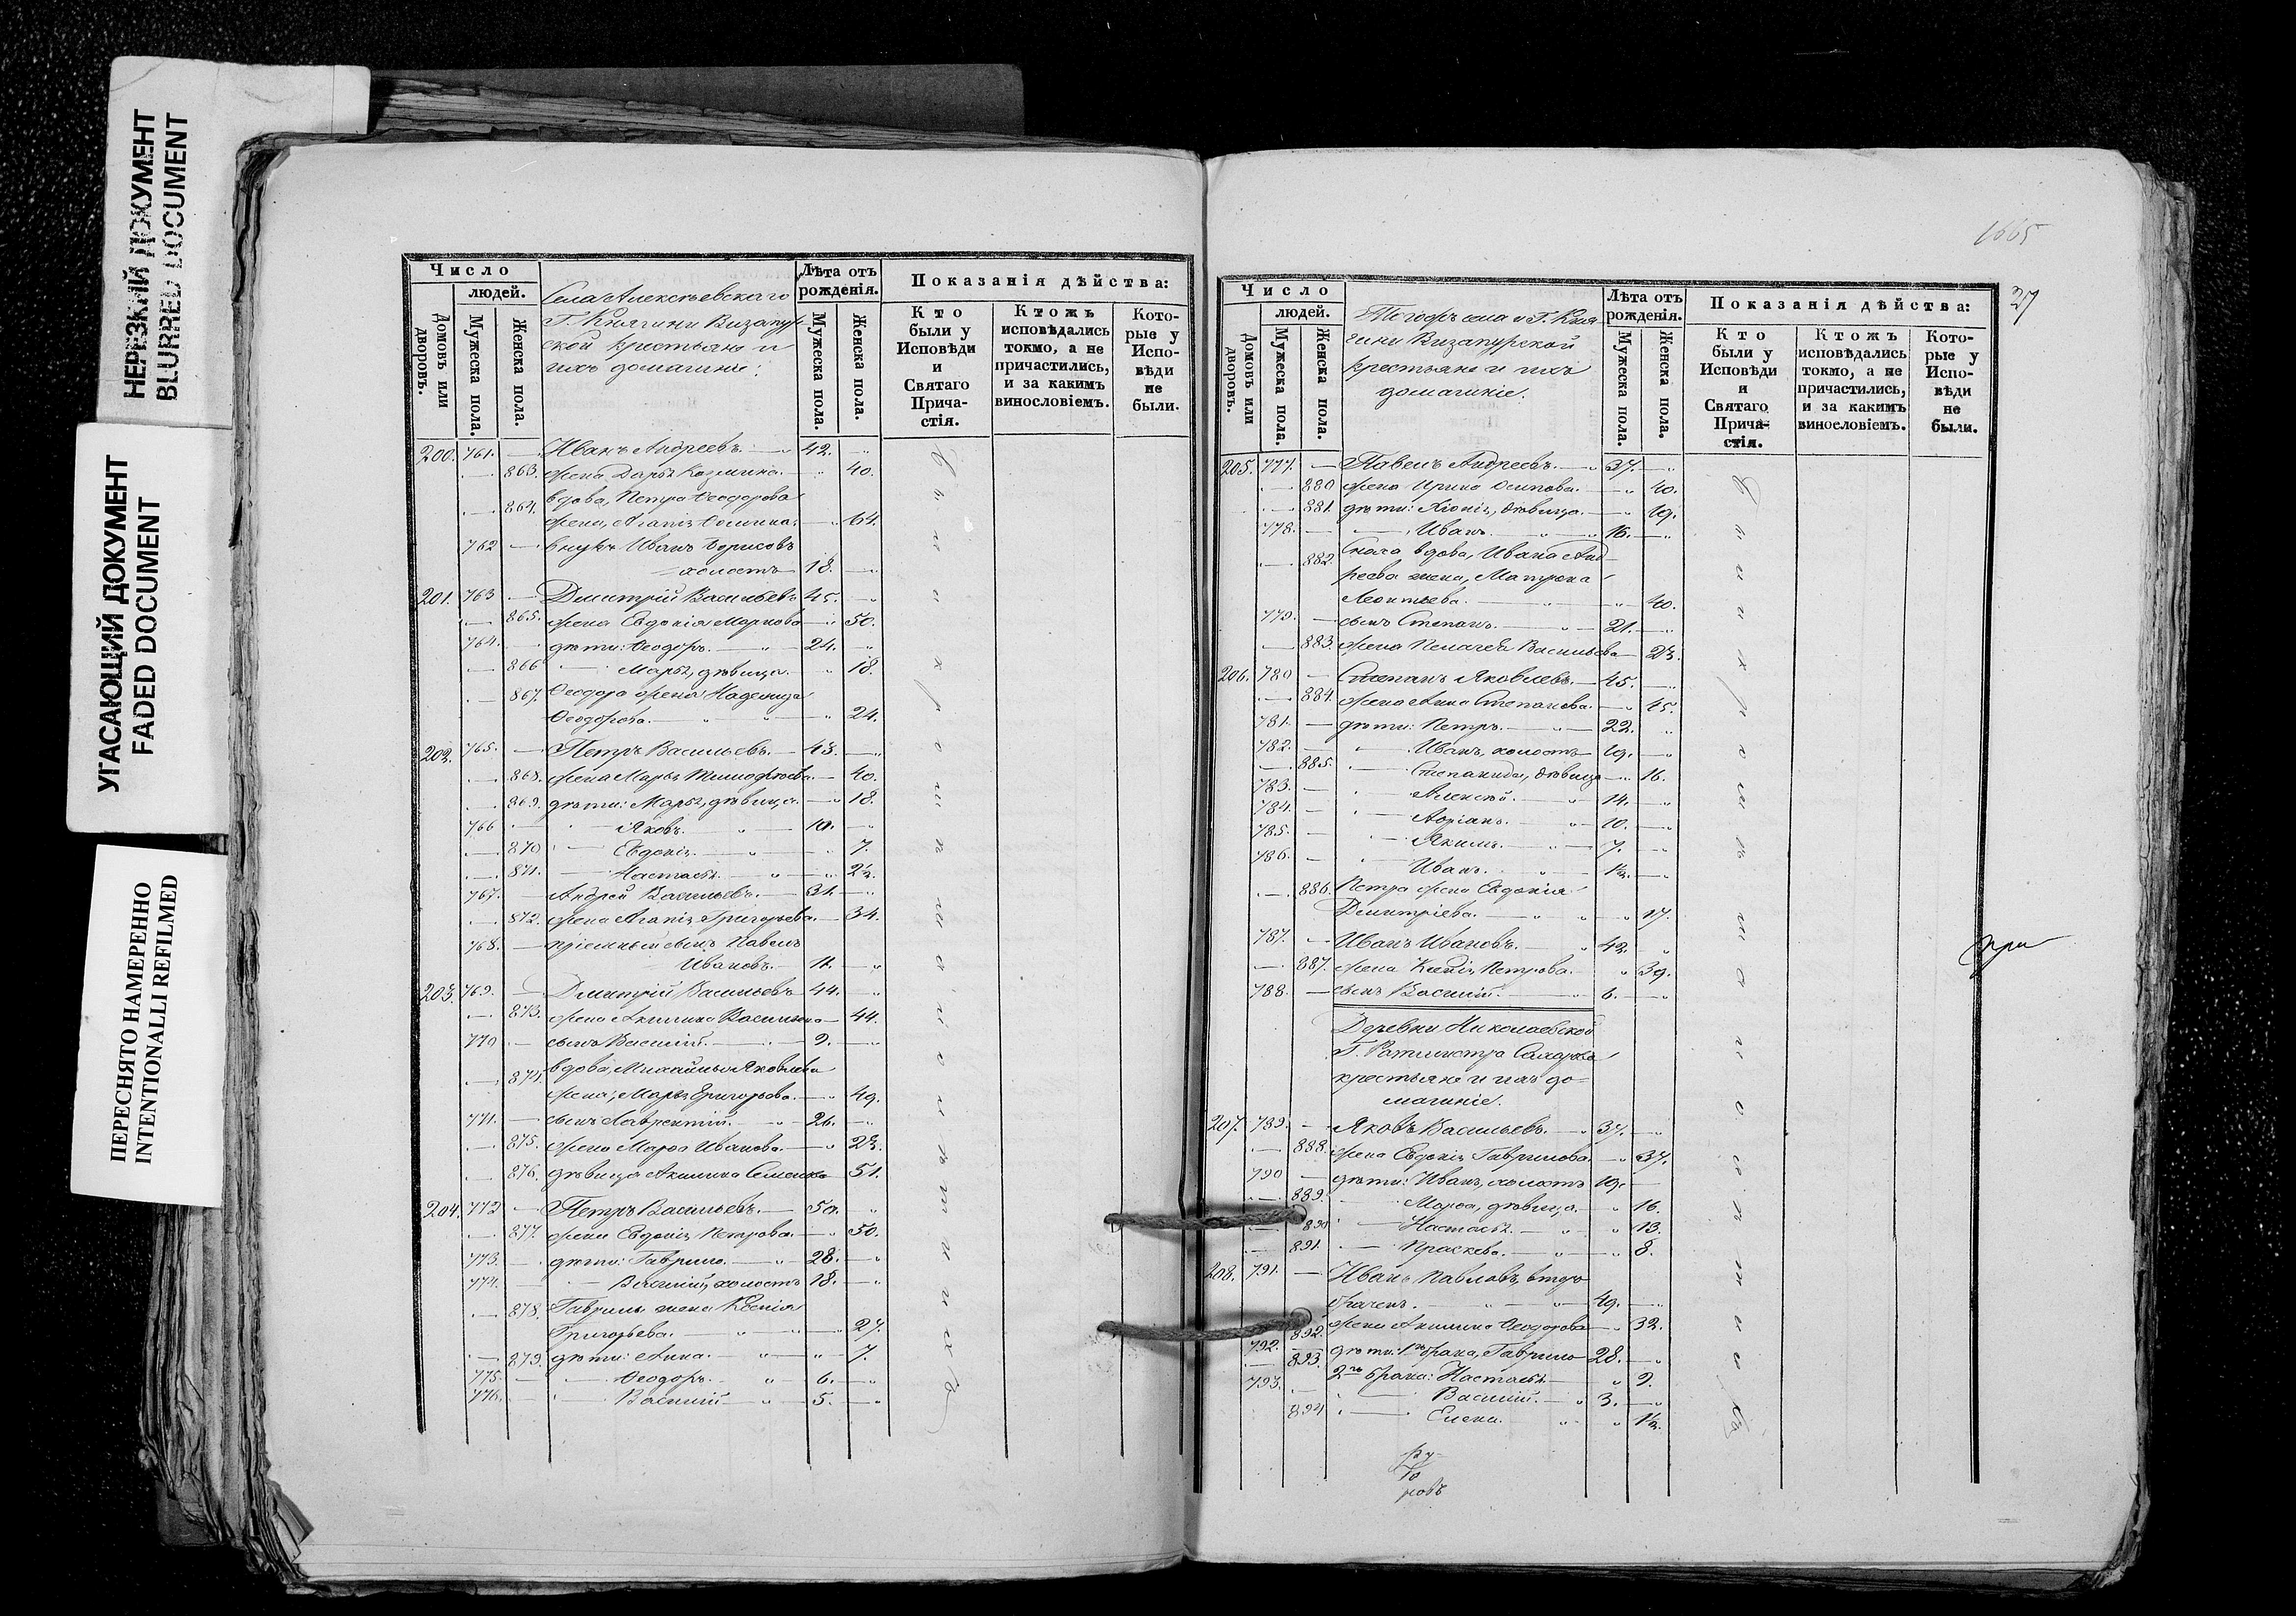 НЕРЕЗКИЙ ДОКУМЕНТ
BLURRED DOCUMENT
УГАСАЮЩИЙ ДОКУМЕНТ
FADED DOCUMENT
ПЕРЕСНЯТО НАМЕРЕННО
INTENTIONALLI REFILMED
Число
людей.
Домовъ или дворовъ.
Мужеска пола.
Женска пола.
Села Алексѣевскаго
Г. Княгини Визапур-
ской крестьяне и
ихъ домашніе:
Лѣта отъ рожденія.
Мужеска пола.
Женска пола.
Показанія дѣйства:
Кто были у Исповѣди и Святаго Причастія.
Ктожъ исповѣдались токмо, а не причастились, и за какимъ винословіемъ.
Которые у Исповѣди не были.
200. 761. — Иванъ Андреевъ. — 42. „
— 863. жена Дарья Козмина. „ 40.
вдова, Петра Ѳеодорова
— 864. жена, Агапія Ѳомина. — „ 64.
762 — внукъ Иванъ Борисовъ
холостъ 18. „
201. 763 — Дмитрій Васильевъ 45. „
— 865. жена Евдокія Маркова „ 50.
764. — дѣти: Ѳеодоръ. — „ 24. „
— 866 — Марья, дѣвица. „ 18.
— 867. Ѳеодора жена Надежда
Ѳеодорова. — „ „ 24.
202. 765. — Петръ Васильевъ. — 43. „
— 868. жена Марья Тимоѳеева. — 40.
— 869. дѣти: Марья, дѣвица. — „ 18.
766 — Яковъ. „ — 10. „
— 870 — Евдокія. „ „ 7.
— 871. — Настасья. „ „ 2½.
767. — Андрей Васильевъ. — 31. „
— 872. жена Агапія Григорьева. — 34.
768. — пріемный сынъ Павелъ
Ивановъ. — 11. „
203. 769. — Дмитрій Васильевъ 44. „
— 873. жена Акилина Васильева — 44.
770 — сынъ Василій. — 9. „
вдова, Михайлы Яковлева
— 874. жена, Марья Григорьева. — 49.
771. — сынъ Лаврентій. „ — 26. „
— 875. жена Марѳа Иванова. — „ 23.
— 876. дѣвица Акилина Семенова 51.
204. 772 — Петръ Васильевъ. — 50. „
— 877. жена Евдокія Петрова. — „ 50.
773. — дѣти: Гаврило. — „ 28. „
774. — Василій, холостъ 18. „
— 878. Гаврилы жена Ксенія
Григорьева. — „ „ 27.
— 879. дѣти: Анна. — „ „ 7.
775. — Ѳеодоръ. „ — 6. „
776. — Василій — „ 5. „
1665
27
Число
людей.
Домовъ или дворовъ.
Мужеска пола.
Женска пола.
Тогожъ села и Г. Кня-
гини Визапурской
крестьяне и ихъ
домашніе.
Лѣта отъ рожденія.
Мужеска пола.
Женска пола.
Показанія дѣйства:
Кто были у Исповѣди и Святаго Причастія.
Ктожъ исповѣдались токмо, а не причастились, и за какимъ винословіемъ.
Которые у Исповѣди не были.
205. 777. — Павелъ Андреевъ. — 37. „
— 880 жена Ирина Осипова. — „ 40.
— 881. дѣти: Хіонія, дѣвица. — „ 19.
778. — Иванъ. „ „ 16. „
882. Сноха вдова, Ивана Анд-
реева жена, Матрона
Леонтьева. — „ „ 40.
779. — сынъ Степанъ. „ 21. „
— 883. жена Пелагея Васильева — 23.
206. 780 — Степанъ Яковлевъ. — 45. „
— 884. жена Анна Степанова. — „ 45.
781. — дѣти: Петръ. — „ 22. „
782. — Иванъ, холостъ 19. „
— 885. — Степанида, дѣвица — „ 16.
783. — Алексѣй. „ 14. „
784. — Адріанъ. „ 10. „
785. — Якимъ. „ 7. „
786. — Иванъ. „ 1½. „
— 886. Петра жена Евдокія
Дмитріева. — „ „ „ 17.
787. — Иванъ Ивановъ. — „ 42. „
— 887. жена Ксенія Петрова. „ 39.
788. — сынъ Василій. — „ 6. „
Деревни Николаевской
Г. Ротмистра
крестьяне и ихъ до-
машніе.
207. 789. — Яковъ Васильевъ. „ 37. „
— 888. жена Евдокія Гаврилова. „ 37.
790 — дѣти: Иванъ, холостъ 19.
— 889. — Марѳа, дѣвица. — „ 16.
— 890 — Настасья. — „ „ 13.
— 891. — Праскева. — „ „ 8.
208. 791. — Иванъ Павловъ, второ-
браченъ. — „ „ 49. „
892. жена Акилина Ѳеодорова „ 32.
792. — дѣти: 1го брака, Гаврило 28. „
— 893. 2го брака: Настасья „ 9.
793. — Василій. — „ 3. „
894 — Елена. „ „ 1½.
при